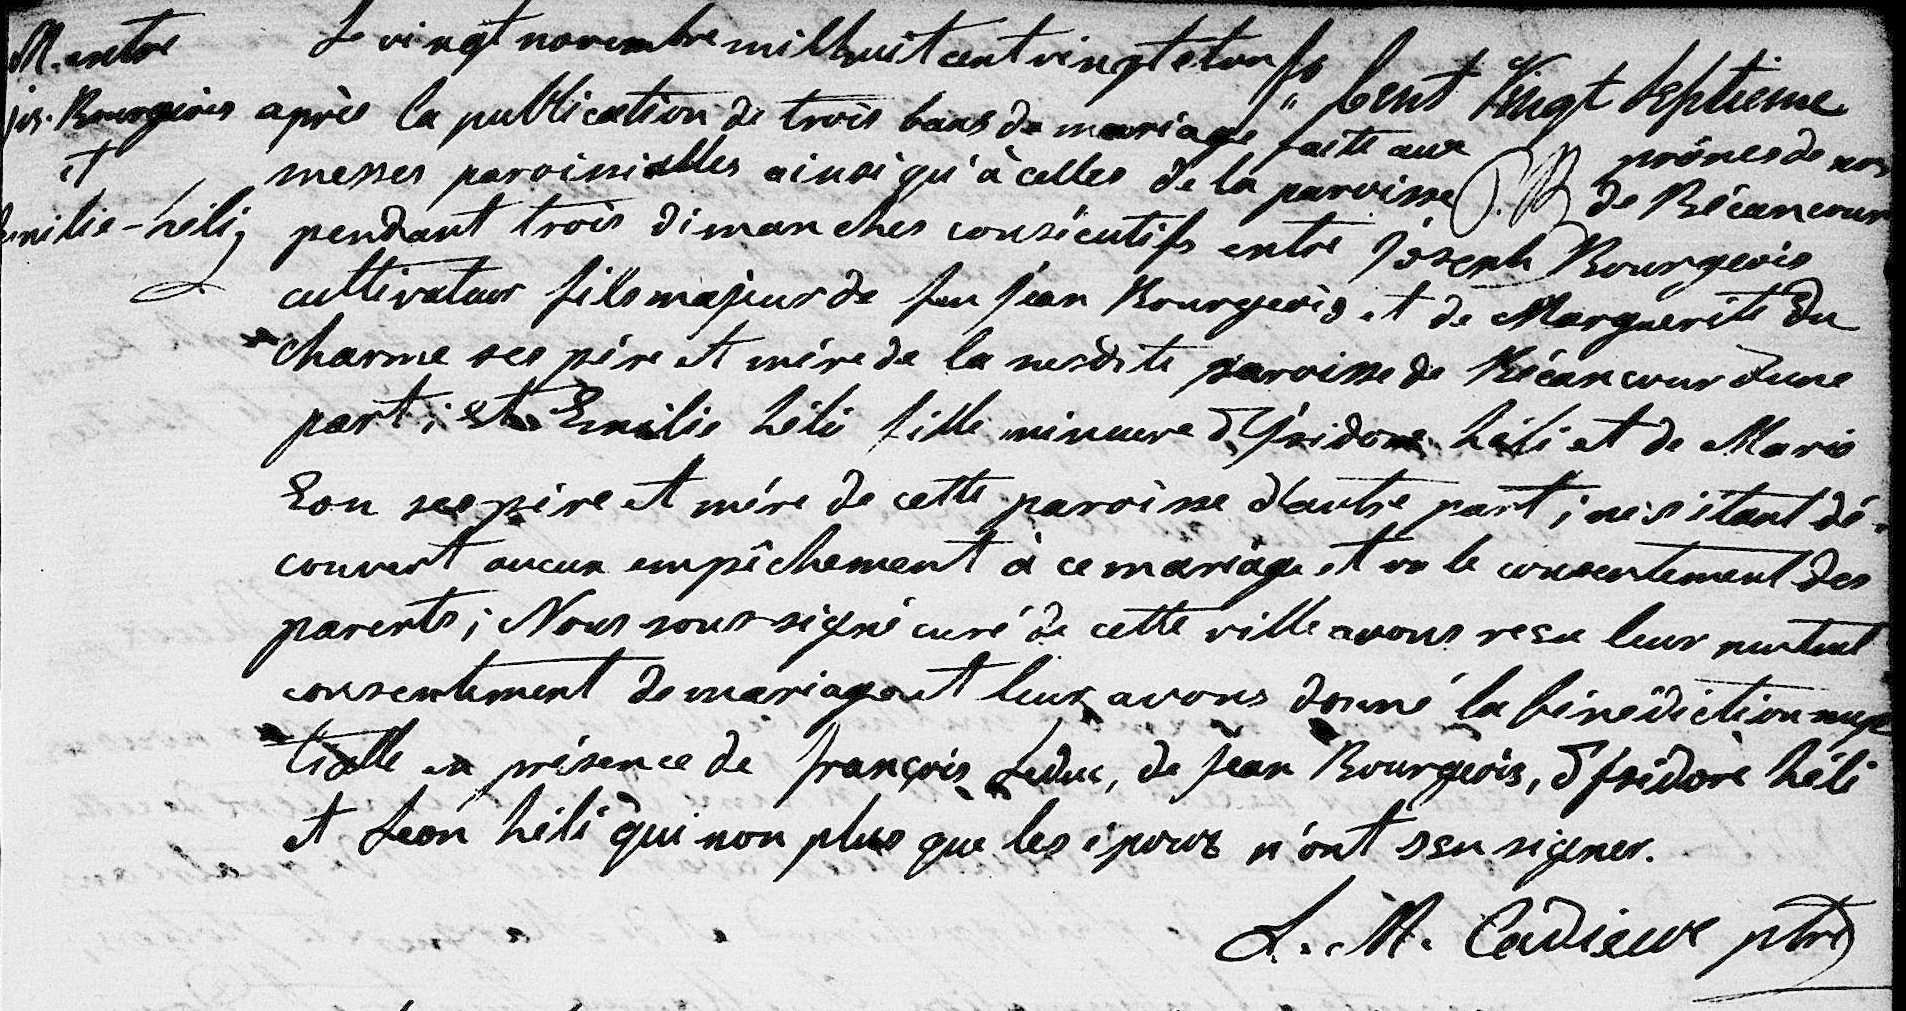 M. entre
jos. Bourgeois
et
Emilie-héli,
Le vingt novembre mil huit cent vingt et un
fo Cent Vingt Septieme
après la publication de trois bans de mariage faite aux prônes de nos
messes paroissialles ainsi qu'à celles de la paroisse de Bécancour
pendant trois dimanches consécutifs entre Joseph Bourgeois
cultivateur fils majeur de feu jean Bourgeois et de Marguerite Du
charme ses père et mère de la susdite paroisse de Bécancour d'une
part; et Emilie héli fille mineure d'Isidore héli et de Marie
Eon ses père et mère de cette paroisse d'autre part; ne s'étant dé-
couvert aucun empêchement à ce mariage et vu le consentement des
parents; Nous sous-signé curé de cette ville avons resu leur mutuel
consentement de mariage et leur avons donné la bénédiction nup
tialle en présence de françois Leduc, de jean Bourgeois, d'Isidore héli
et Léon héli qui non plus que les époux n'ont seu signer.
L. M. Cadieux ptre